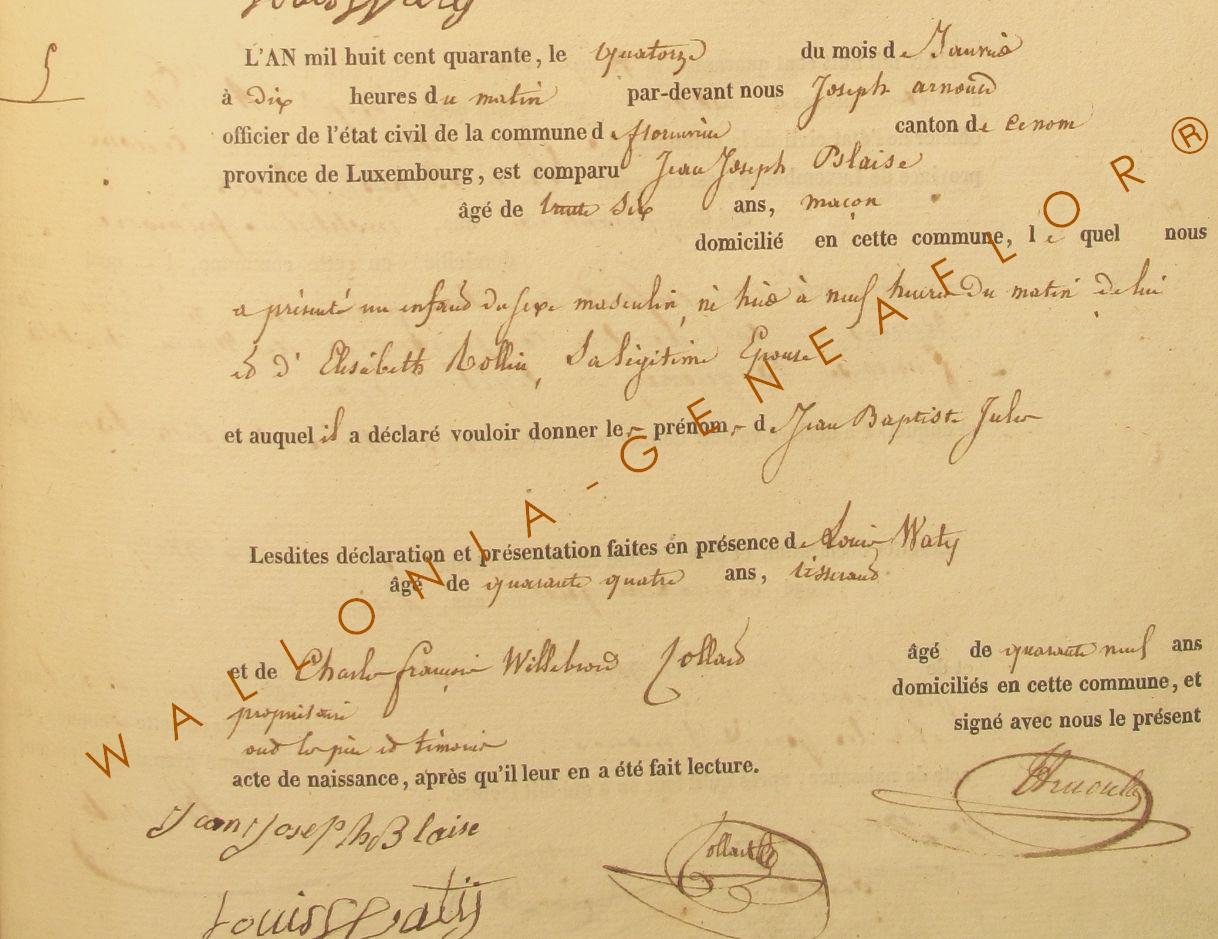 5
L'AN mil huit cent quarante, le quatorze du mois de Janvier
à dix heures du matin par-devant nous Joseph arnould
officier de l'état civil de la commune de florenville canton de
province de Luxembourg, est comparu Jean Joseph Blaise
âgé de trente six ans, maçon
domicilié en cette commune, le quel nous
a présenté un enfant du sexe masculin, né hier à neuf heures du matin de lui
et d'Elisabeth Rollin, Sa légitime Epouse
et auquel il a déclaré vouloir donner les prénoms de Jean Baptiste Jules
Lesdites déclaration et présentation faites en présence de Louis Waty
âgé de quarante quatre ans, tisserand
et de Charles françois Willebrord Collard âgé de quarante neuf ans
propriétaire domiciliés en cette commune, et
ont le père et témoins signé avec nous le présent
acte de naissance, après qu'il leur en a été fait lecture.
Jean Joseph Blaise
Collard
Louis Waty
WALLONIA-GENEAFLOR®